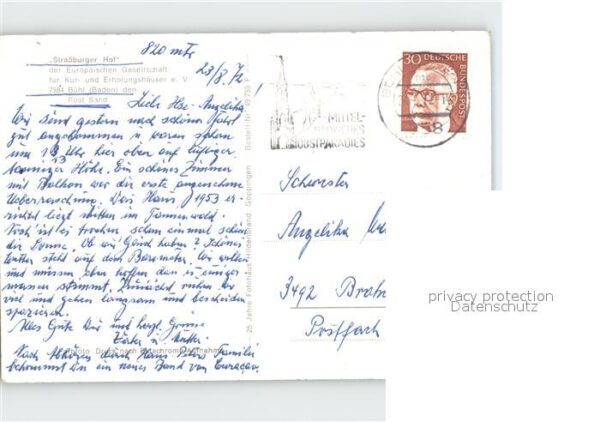 820 mtr
„Straßburger Hof"
der Europäischen Gesellschaft
für Kur- und Erholungshäuser e. V.
7581 Bühl (Baden) den 23/8.72
Post Sand
Liebe Angelika
Wir sind gestern nach schöner Fahrt
gut angekommen u waren schon
um 13 Uhr hier oben auf luftiger
Höhe. Ein schönes Zimmer
mit Balkon war die erste angenehme
Ueberraschung. Das Haus 1953 er-
richtet liegt mitten im Tannenwald.
Noch ist es trocken schon einmal schien
die Sonne. Ob wir Glück haben? Schönes
Wetter steht auf dem Barometer, wir wollen
und müssen aber hoffen das es einiger
massen stimmt. Zunächst ruhen wir
viel und gehen langsam und bescheiden
spazieren.
Alles Gute Dir und herzl. Grüsse
Vater u Mutter
Nach durch Hans Peters Familie
bekommst Du ein neues Band von Curaçao.
25 Jahre Fotohaus Hildenbrand, Göppingen
30 DEUTSCHE BUNDESPOST
MITTEL-
BADISCHES
OBSTPARADIES
Schwester
Angelika
3492 Brak
Postfach
privacy protection
Datenschutz